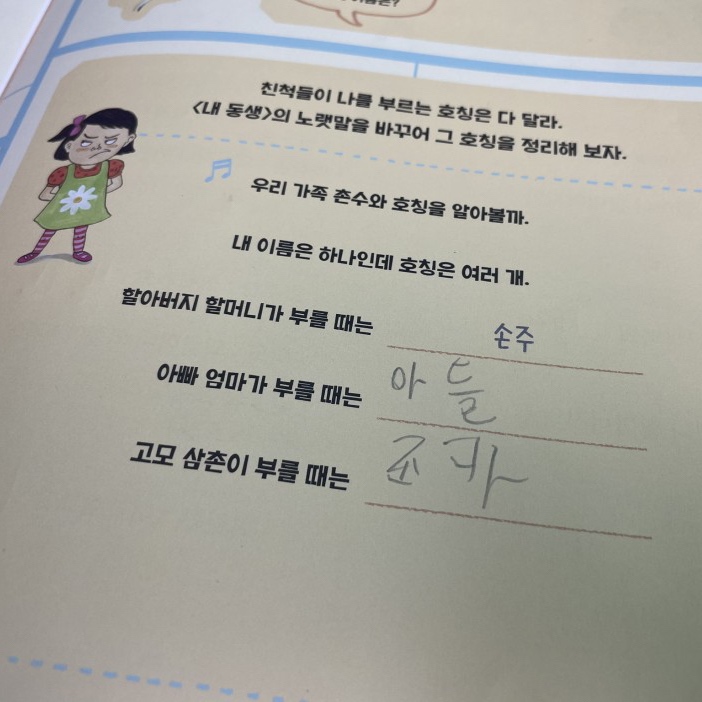 친척들이 나를 부르는 호칭은 다 달라.
<내 동생>의 노랫말을 바꾸어 그 호칭을 정리해 보자.
우리 가족 촌수와 호칭을 알아볼까.
내 이름은 하나인데 호칭은 여러 개.
할아버지 할머니가 부를 때는 손주
아빠 엄마가 부를 때는 아들
고모 삼촌이 부를 때는 조카